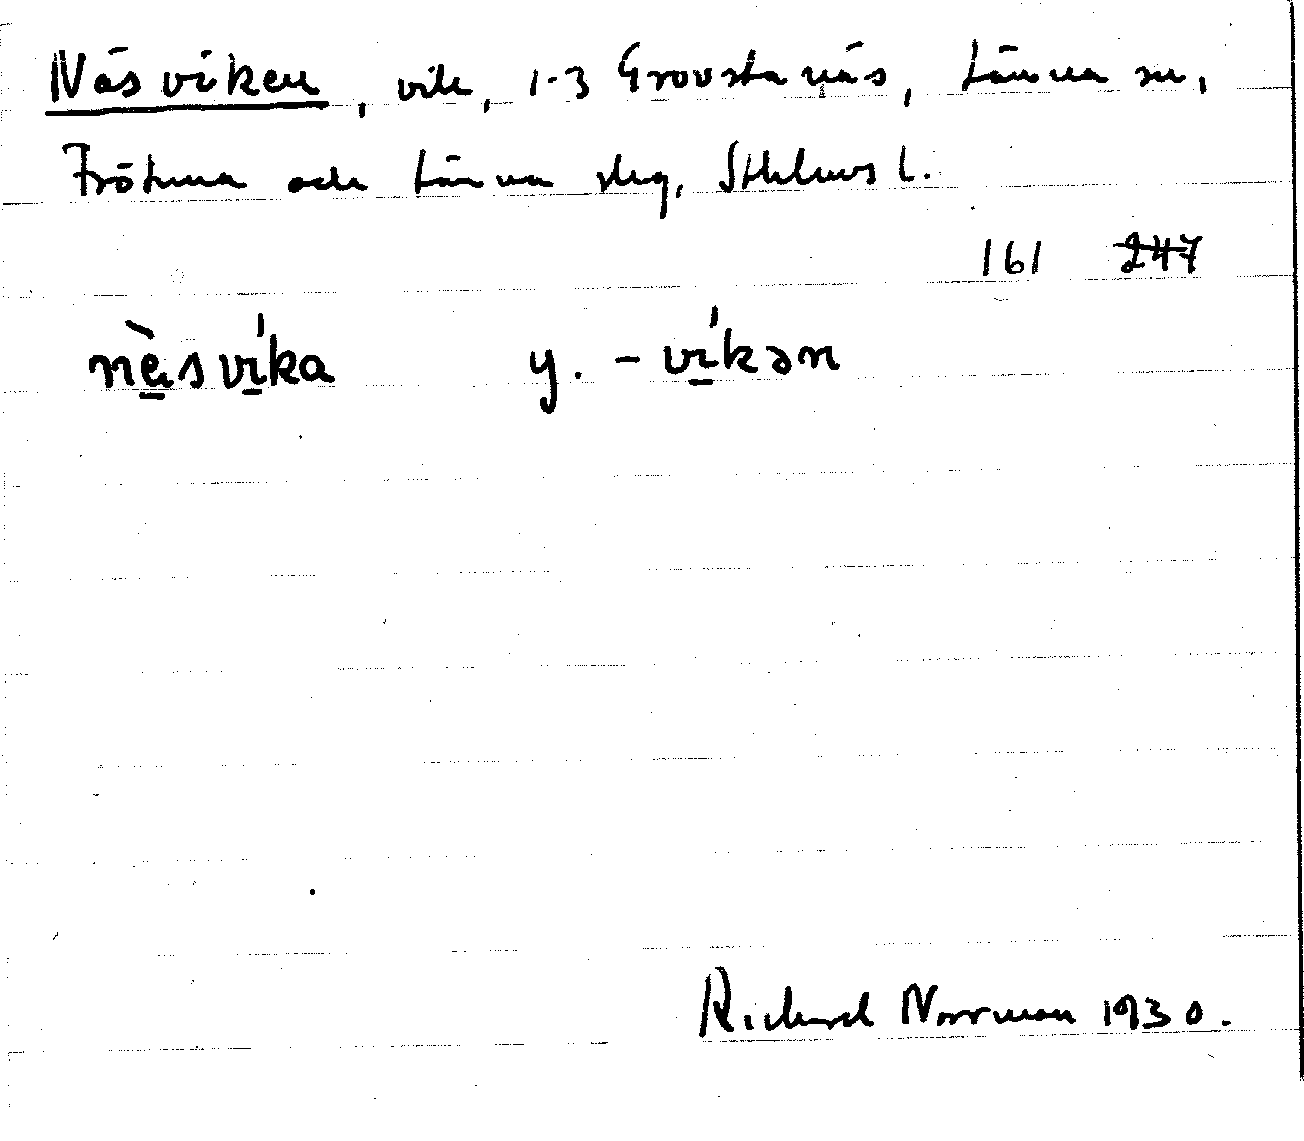 Näsviken, vik, 1-3 Grovstanäs, Länna sn,
Frötuna och Länna skg, Sthlms l.
161 247
nä̀svíka y. -víkən
Richard Norrman 1930.